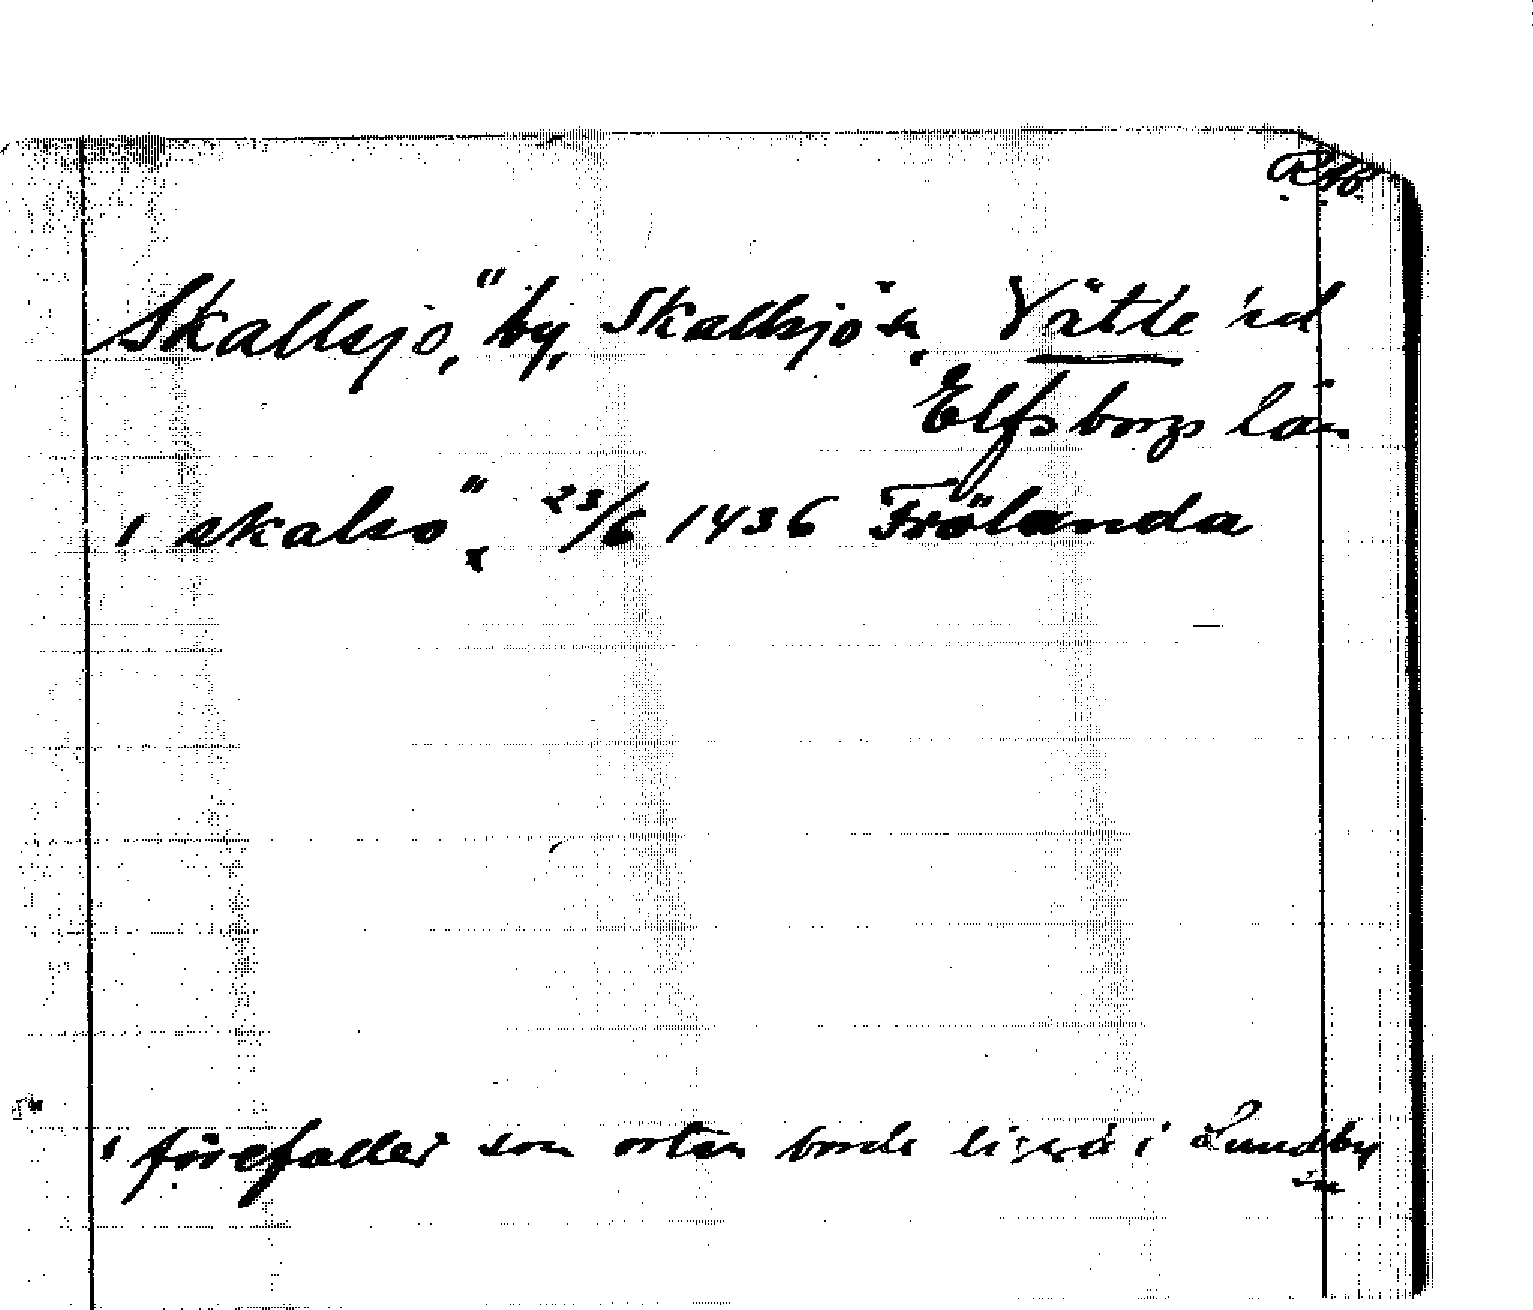 Skallsjö, by, Skallsjö sn, Vätte hd
Elfsborgs län
i skalsö 23/6 1436 Frölanda
x förefaller som orten borde ligga i Lundby
sn